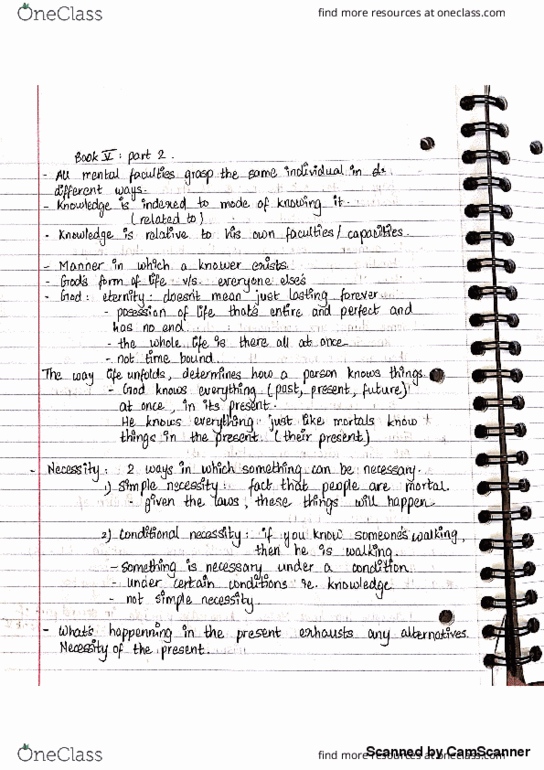 OneClass
find more resources at oneclass.com
Book V : part 2 .
- All mental faculties grasp the same individual in
different ways.
- Knowledge is indexed to mode of knowing it.
(related to)
- Knowledge is relative to his own faculties/capacities.
- Manner in which a knower exists.
- God's form of life v/s everyone else's
- God: eternity: doesn't mean just lasting forever
- posession of life thats entire and perfect and
has no end.
- the whole life is there all at once
- not time bound.
The way life unfolds, determines how a person knows things.
- God knows everything (past, present, future)
at once, in its present.
He knows everything just like mortals know
things in the present. (their present)
- Necessity: 2 ways in which something can be necessary.
1) Simple necessity: fact that people are mortal.
- given the laws, these things will happen
2) Conditional necessity: if you know someone's walking,
then he is walking.
- something is necessary under a condition.
- under certain conditions ie. knowledge
- not simple necessity
- What's happenning in the present exhausts any alternatives.
Necessity of the present.
OneClass
find more resources at oneclass.com
Scanned by CamScanner